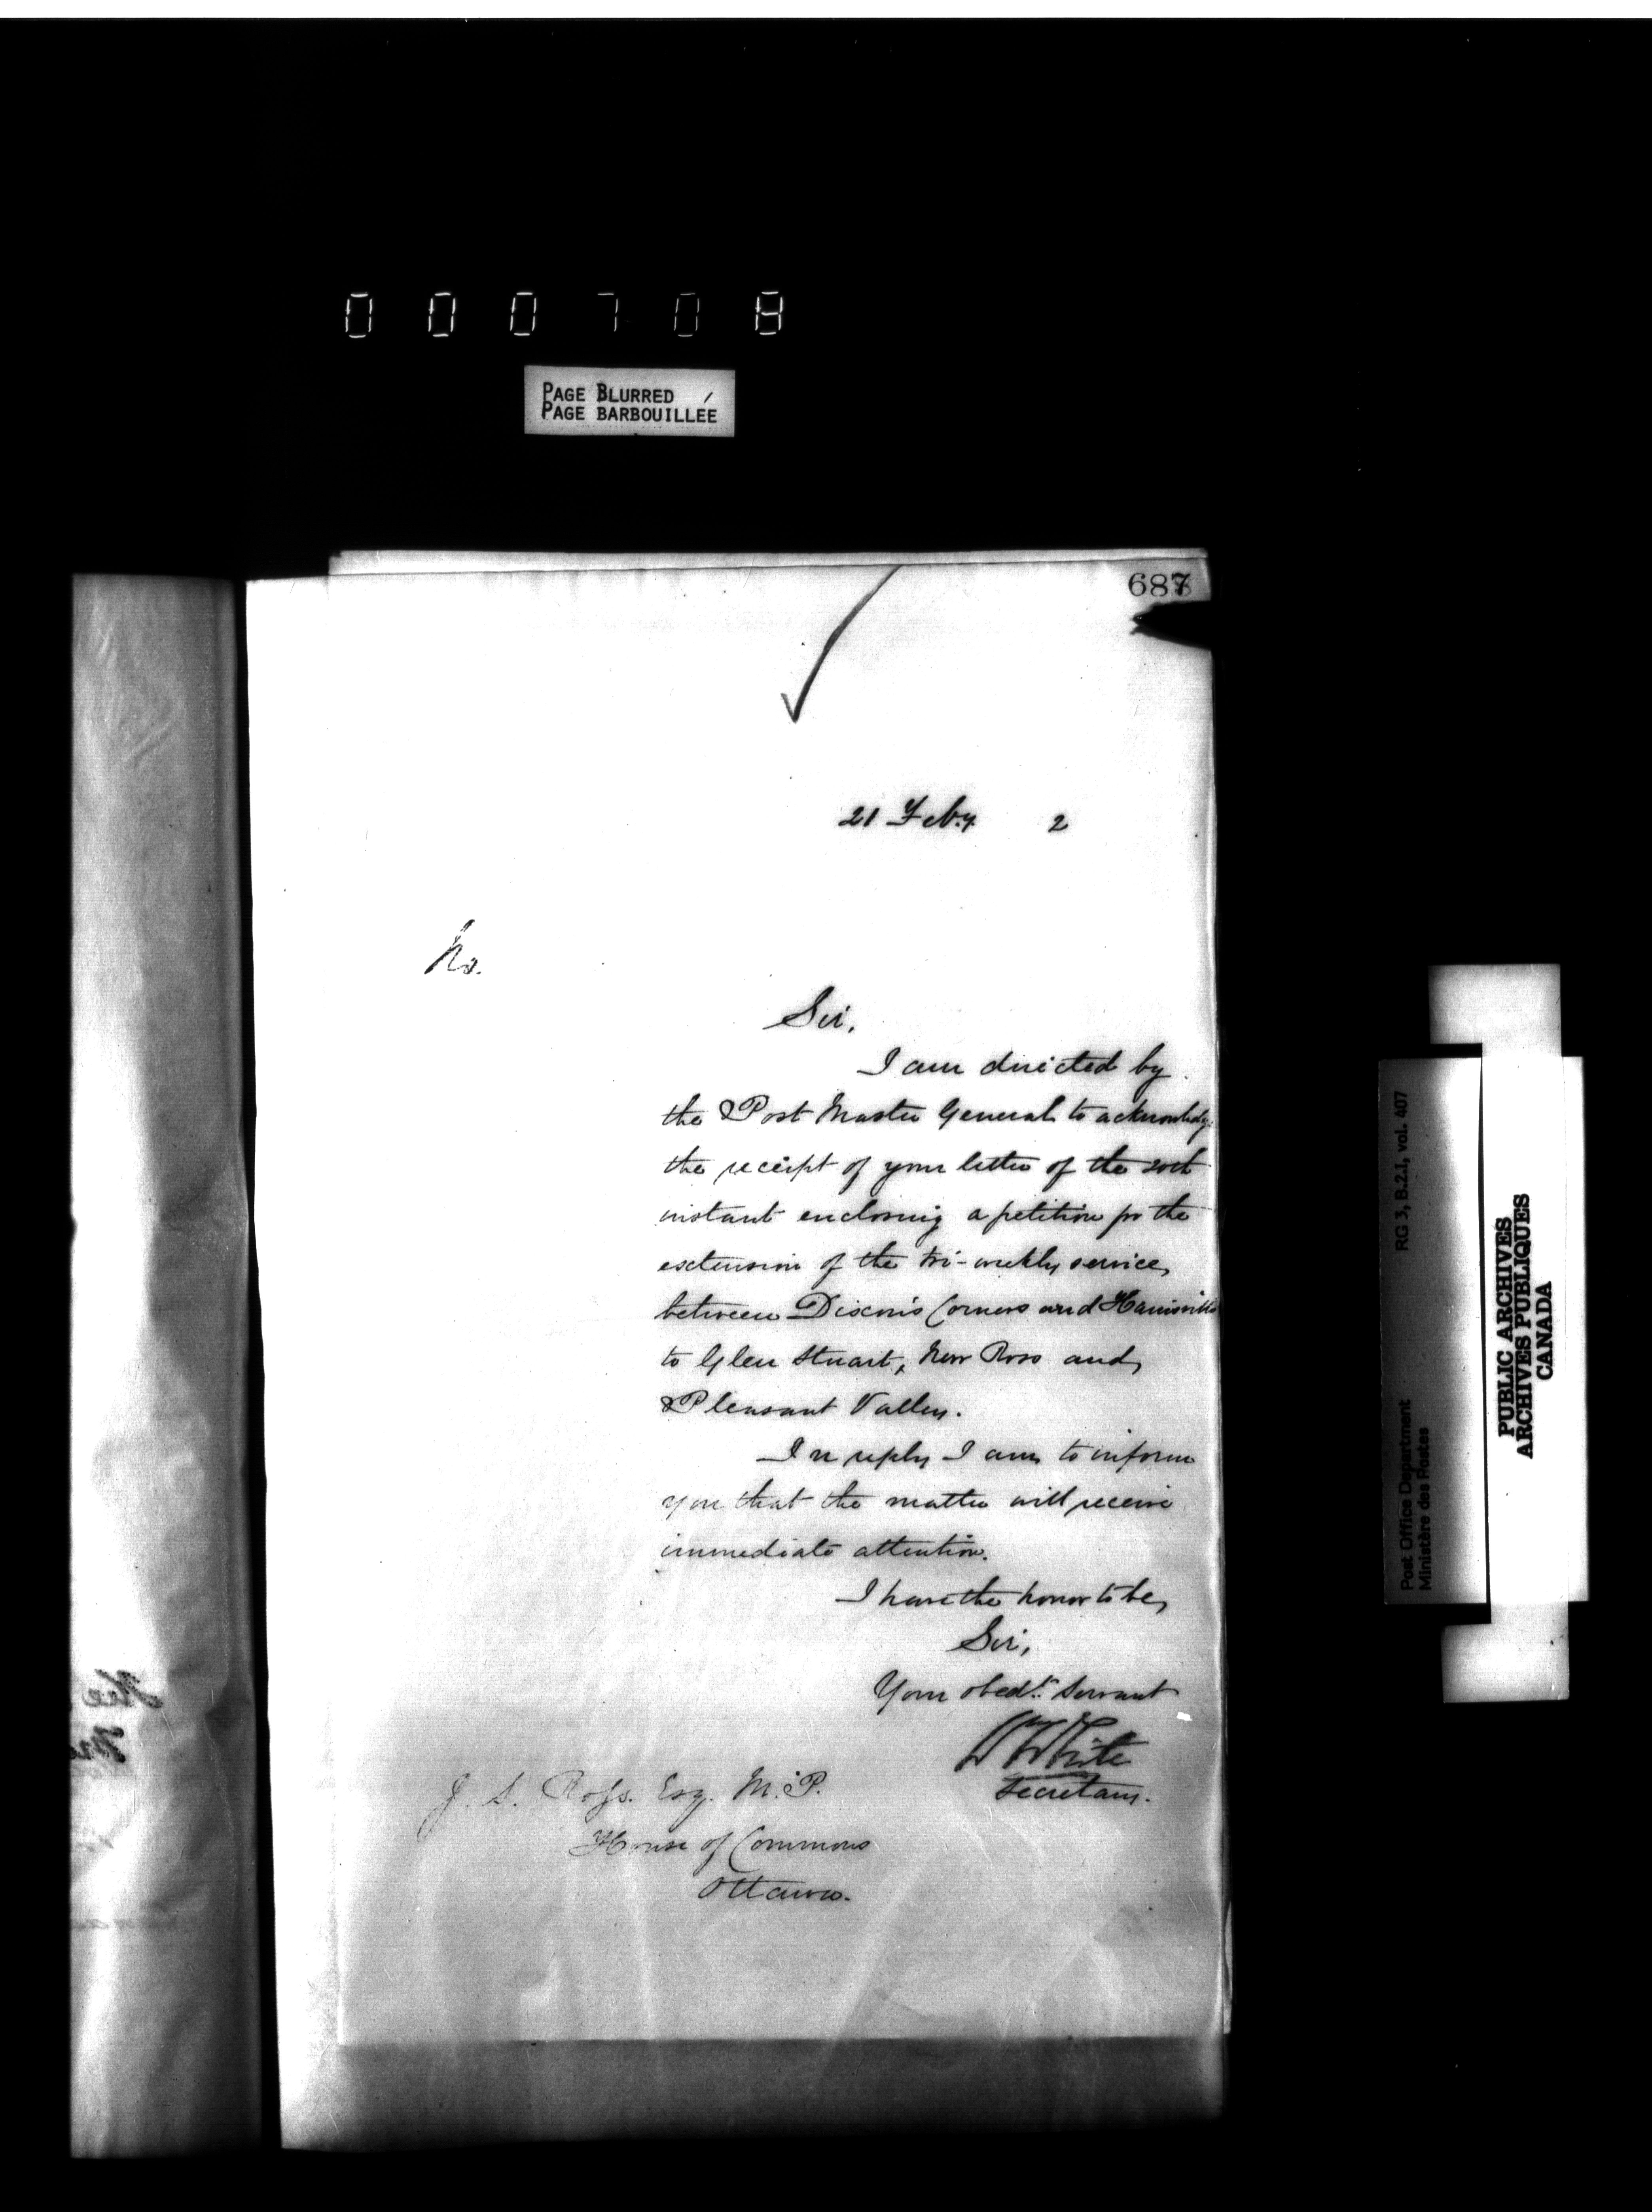 000708
PAGE BLURRED
PAGE BARBOUILLÉE
687
21 Feby. 2
No.
Sir,
I am directed by
the Post Master General to acknowledge
the receipt of your letter of the 20th
instant enclosing a petition for the
extension of the tri-weekly service
between Dixon's Corners and Hainsville
to Glen Stuart, New Ross and
Pleasant Valley.
In reply I am to inform
you that the matter will receive
immediate attention.
I have the honor to be,
Sir,
Your obedt. Servant
W White
Secretary.
J. S. Ross. Esq. M.P.
House of Commons
Ottawa.
Post Office Department RG 3, B.2.I, vol. 407
Ministère des Postes
PUBLIC ARCHIVES
ARCHIVES PUBLIQUES
CANADA